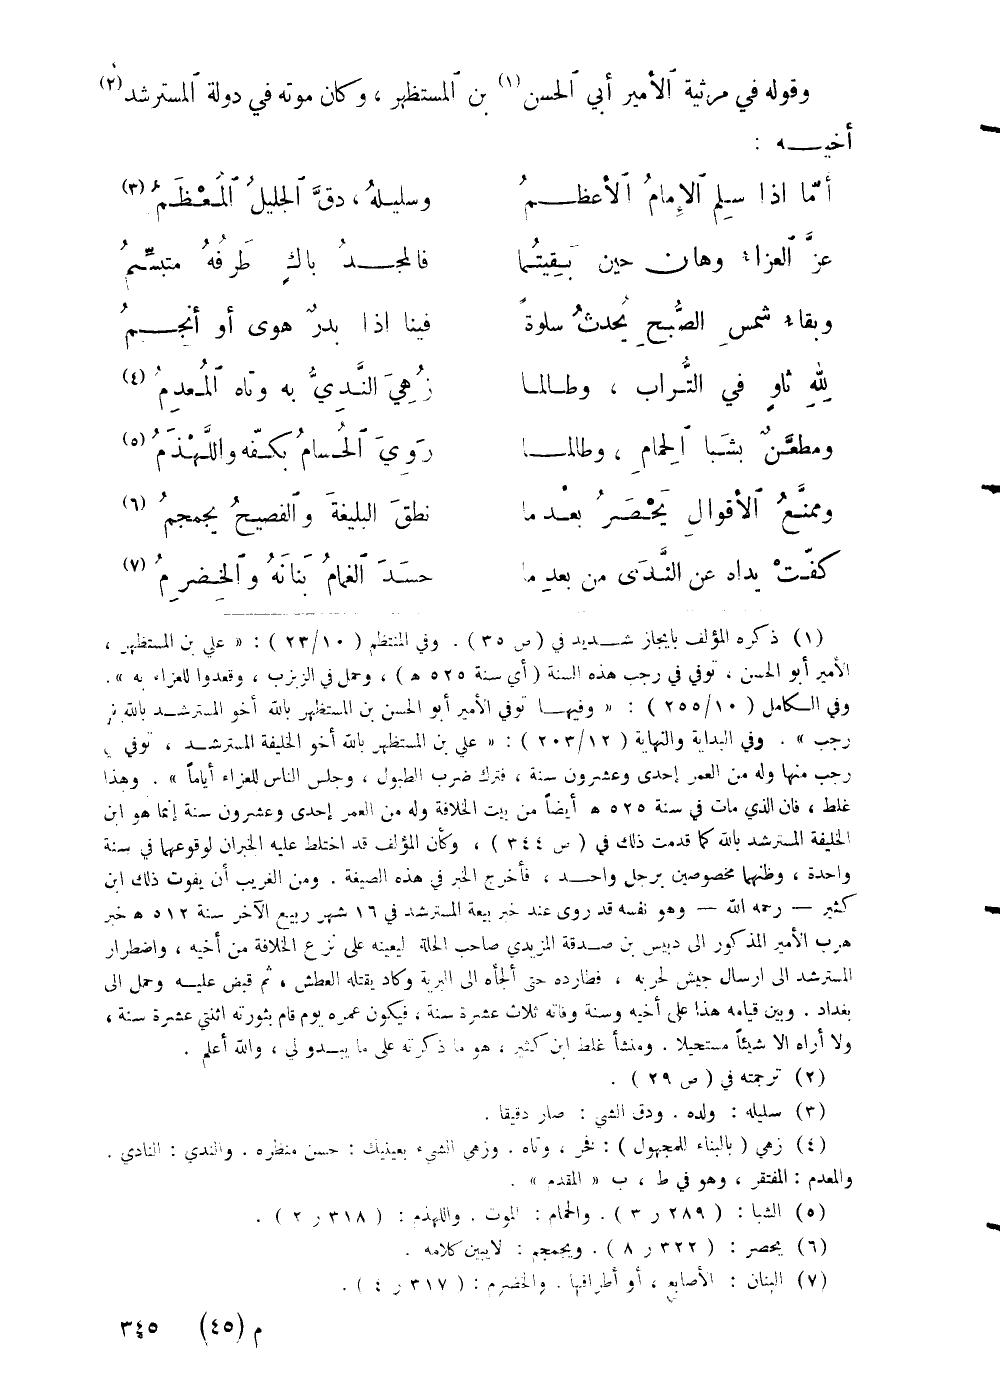 وقوله في مرثية الأمير أبي الحسن (١) بن المستظهر ، وكان موته في دولة المسترشد (٢)
أخيــه :
أمّا اذا سلم الإمامُ الأعظـــمُ وسليلهُ ، دقَّ الجليلُ المُعْظَمُ (٣)
عزَّ العزاء وهان حين بَقِيتُما فالمجــدُ باكٍ طَرفُهُ متبسّمُ
وبقاء شمسِ الصُّبحِ يُحدثُ سلوةً فينا اذا بدرٌ هوى أو أنجــمُ
لِلهِ ثاوٍ في التُّراب ، وطالما زُهِيَ النَّدِيُّ به وتاه المُعدِمُ (٤)
ومطعَّنٌ بشَبا الحِمامِ ، وطالمــا رَوِيَ الحُسامُ بكفّه واللَّهْذَمُ (٥)
وممنَّعُ الأقوالِ يَحْصَرُ بعْدما نطقَ البليغةَ والفصيحُ يجمجمُ (٦)
كفّتْ يداه عن النَّدَى من بعدِ ما حسَدَ الغمامُ بَنانَهُ والخِضرِمُ (٧)
(١) ذكره المؤلف بايجاز شــديد في ( ص ٣٥ ) . وفي المنتظم ( ٢٣/١٠ ) : « علي بن المستظهر ،
الأمير أبو الحسن ، توفي في رجب هذه السنة ( أي سنة ٥٢٥ ه ) ، وحمل في الزبزب ، وقعدوا للعزاء به » .
وفي الكامل ( ٢٥٥/١٠ ) : « وفيهــا توفي الأمير أبو الحسن بن المستظهر بالله أخو المسترشــد بالله في
رجب » . وفي البداية والنهاية ( ٢٠٣/١٢ ) : « علي بن المستظهر بالله أخو الخليفة المسترشــد ، توفي في
رجب منها وله من العمر إحدى وعشرون سنة ، فترك ضرب الطبول ، وجلس الناس للعزاء أياماً » . وهذا
غلط ، فان الذي مات في سنة ٥٢٥ ه أيضاً من بيت الخلافة وله من العمر إحدى وعشرون سنة إنما هو ابن
الخليفة المسترشد بالله كما قدمت ذلك في ( ص ٣٤٤ ) ، وكأن المؤلف قد اختلط عليه الخبران لوقوعهما في سنة
واحدة ، وظنهما مخصوصين برجل واحــد ، فأخرج الخبر في هذه الصيغة . ومن الغريب أن يفوت ذلك ابن
كثير — رحمه الله — وهو نفسه قد روى عند خبر بيعة المسترشد في ١٦ شهر ربيع الآخر سنة ٥١٢ ه خبر
هرب الأمير المذكور الى دبيس بن صــدقة المزيدي صاحب الحلة ليعينه على نزع الخلافة من أخيه ، واضطرار
المسترشد الى ارسال جيش لحربه ، فطارده حتى ألجأه الى البرية وكاد يقتله العطش ، ثم قبض عليــه وحمل الى
بغداد . وبين قيامه هذا على أخيه وسنة وفاته ثلاث عشرة سنة ، فيكون عمره يوم قام بثورته اثنتي عشرة سنة ،
ولا أراه الا شيئاً مستحيلا . ومنشأ غلط ابن كثير ، هو ما ذكرته على ما يبــدو لي ، والله أعلم .
(٢) ترجمته في ( ص ٢٩ ) .
(٣) سليله : ولده . ودق الشي : صار دقيقا .
(٤) زهي ( بالبناء للمجهول ) : فخر ، وتاه . وزهي الشيء بعينيك : حسن منظره . والندي : النادي .
والمعدم : المفتقر ، وهو في ط ، ب « المقدم » .
(٥) الشبا : ( ٢٨٩ ر ٣ ) . والحمام : الموت . واللهذم : ( ٣١٨ ر ٢ ) .
(٦) يحصر : ( ٣٢٢ ر ٨ ) . ويجمجم : لا يبين كلامه .
(٧) البنان : الأصابع ، أو أطرافها . والخضرم : ( ٣١٧ ر ٤ ) .
م (٤٥) ٣٤٥